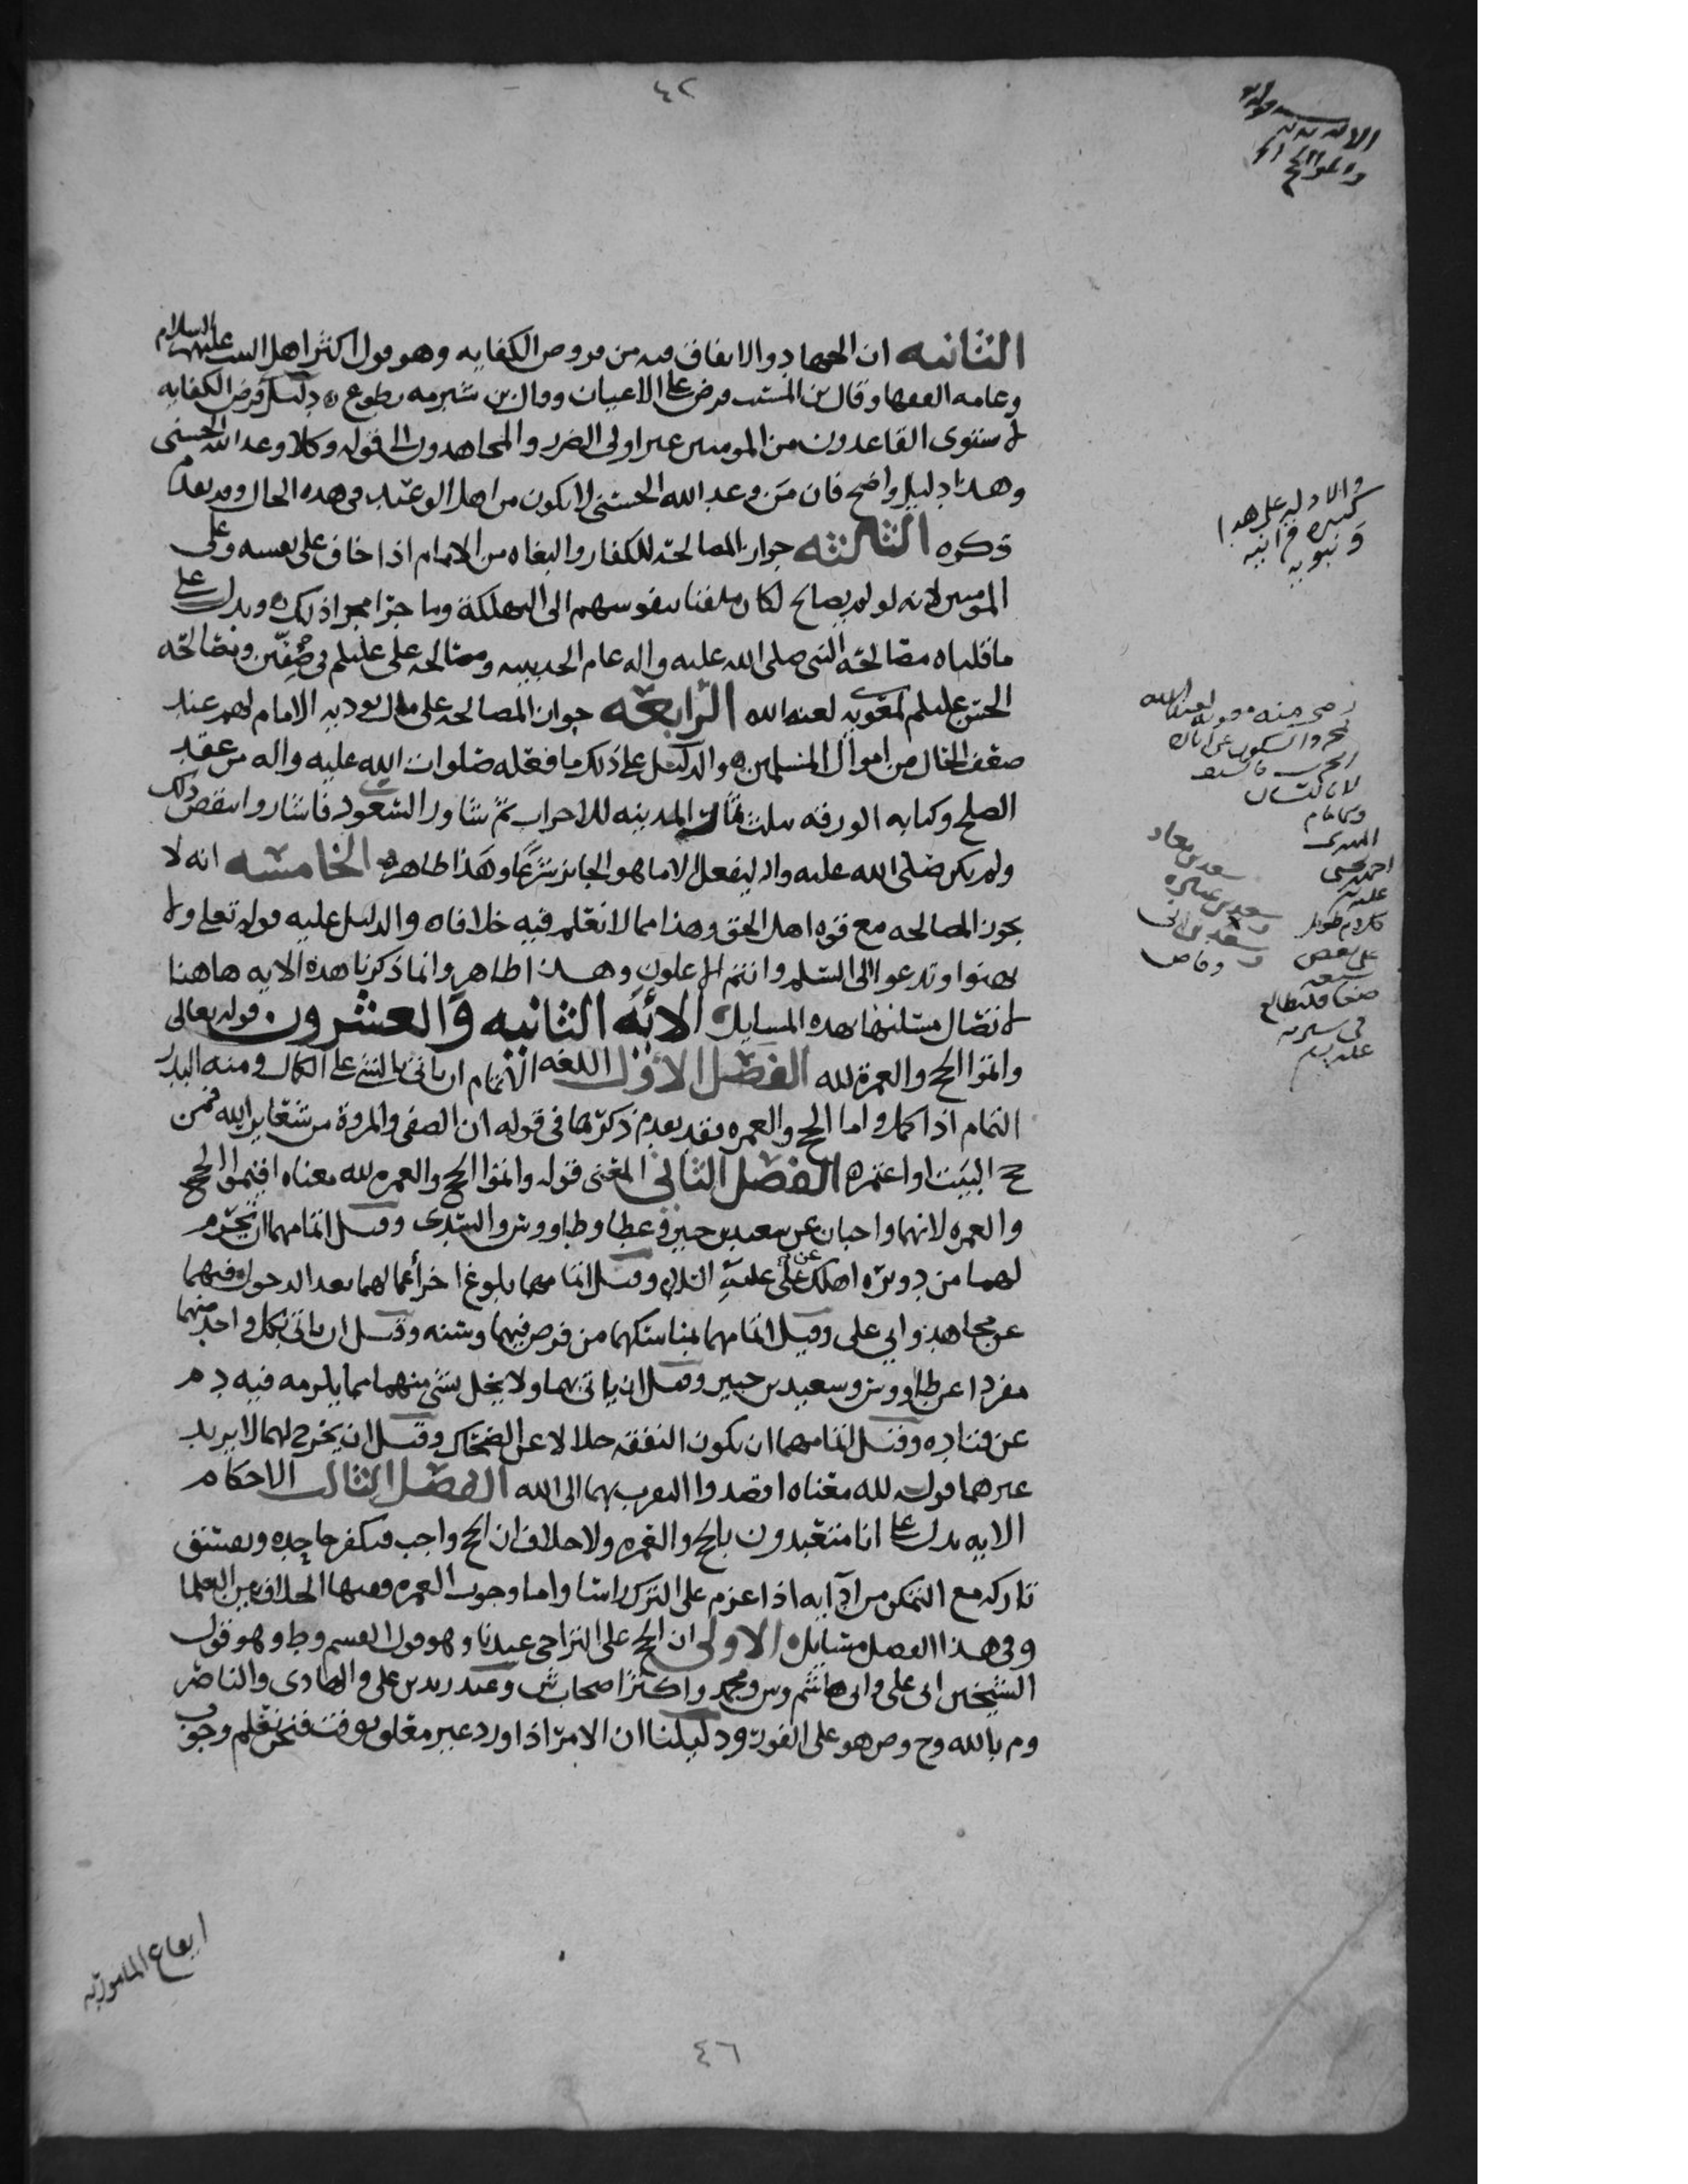 ٤٢
الثانيه ان الجهاد والانفاق فيه من فروض الكفايه وهو قول اكثر اهل البيت عليهم السلام
وعامه الفقها وقال بن المسيب فرض على الاعيان وقال بن شبرمه تطوع ه دليل فرض الكفايه
لا يستوى القاعدون من المومنين غير اولى الضرر والمجاهدون الى قوله وكلا وعد الله الحسنى
وهذا دليل واضح فان من وعد الله الحسنى لا يكون من اهل الوعيد في هذه الحال وقد تقدم
ذكره الثالثه جواز المصالحه للكفار والبغاه من الامام اذا خاف على نفسه وعلى
المومنين لانه لو لم يصالح لكان ملقيا بنفوسهم الى التهلكة وما جرا مجرا ذلك ه ويدل على
ما قلناه مصالحه النبي صلى الله عليه واله عام الحديبيه ومصالحه على عليلم في صفين ومصالحه
الحسن عليلم لمعويه لعنه الله الرابعه جواز المصالحه على مال يوديه الامام لهم عند
ضعف الحال من اموال المسلمين ه والدليل على ذلك ما فعله صلوات الله عليه واله من عقد
الصلح وكتابه الورقه بثلث ثمار المدينه للاحزاب ثم شاور السعود فاشاروا بنقض ذلك
ولم يكن صلى الله عليه واله ليفعل الا ما هو الجايز شرعا وهذا ظاهر ه الخامسه انه لا
يجوز المصالحه مع قوه اهل الحق وهذا مما لا نعلم فيه خلافا ه والدليل عليه قوله تعلى ولا
تهنوا وتدعوا الى السلم وانتم الاعلون وهذا ظاهر وانما ذكرنا هذه الايه هاهنا
لاتصال مسئلتها بهذه المسايل الايه الثانيه والعشرون قوله تعالى
واتموا الحج والعمرة لله الفصل الاول اللغه الاتمام ان ياتي بالشي على الكمال ومنه البدر
التمام اذا كمل واما الحج والعمره فقد تقدم ذكرهما في قوله ان الصفى والمروة من شعاير الله فمن
حج البيت او اعتمر ه الفصل الثاني المعنى قوله واتموا الحج والعمره لله معناه اقيموا الحج
والعمره لانهما واجبان عن سعيد بن جبير وعطا وطاووس والسدى وقيل اتمامهما ان تحرم
لهما من دويره اهلك عن على عليه السلام وقيل اتمامهما بلوغ اخر أعمالهما بعد الدخول فيهما
عن مجاهد وابي على وقيل اتمامهما بمناسكهما من فرض فيهما وسنه وقيل ان ياتي بكل واحد منهما
مفردا عن طاووس وسعيد بن جبير وقيل ان ياتي بهما ولا يخل بشي منهما مما يلزمه فيه دم
عن قتاده وقيل اتمامهما ان يكون النفقه حلالا عن الضحاك وقيل ان يخرج لهما لا يريد
غيرهما قوله لله معناه اقصدوا التقرب بهما الى الله الفصل الثالث الاحكام
الايه تدل على انا متعبدون بالحج والعمره ولا خلاف ان الحج واجب فيكفر جاحده ويفسق
تاركه مع التمكن من ادآيه اذا عزم على الترك ابدا واما وجوب العمره ففيها الخلاف بين العلما
وفي هذا الفصل مسايل ه الاولى ان الحج على التراخى عندنا وهو قول القسم وط وهو قول
الشيخين ابي على وابي هاشم وس ومحمد واكثر اصحاب ش وعند زيد بن على والهادى والناصر
وم بالله وح وص هو على الفور ه ودليلنا ان الامر اذا ورد غير معلق بوقت فنحن نعلم وجوب
والادليه على هذا
كثيره قرانيه
ونبويه
سعد بن معاذ
وسعد بن عباده
وسعد بن ابي
وقاص
ايقاع المامور به
٤٦